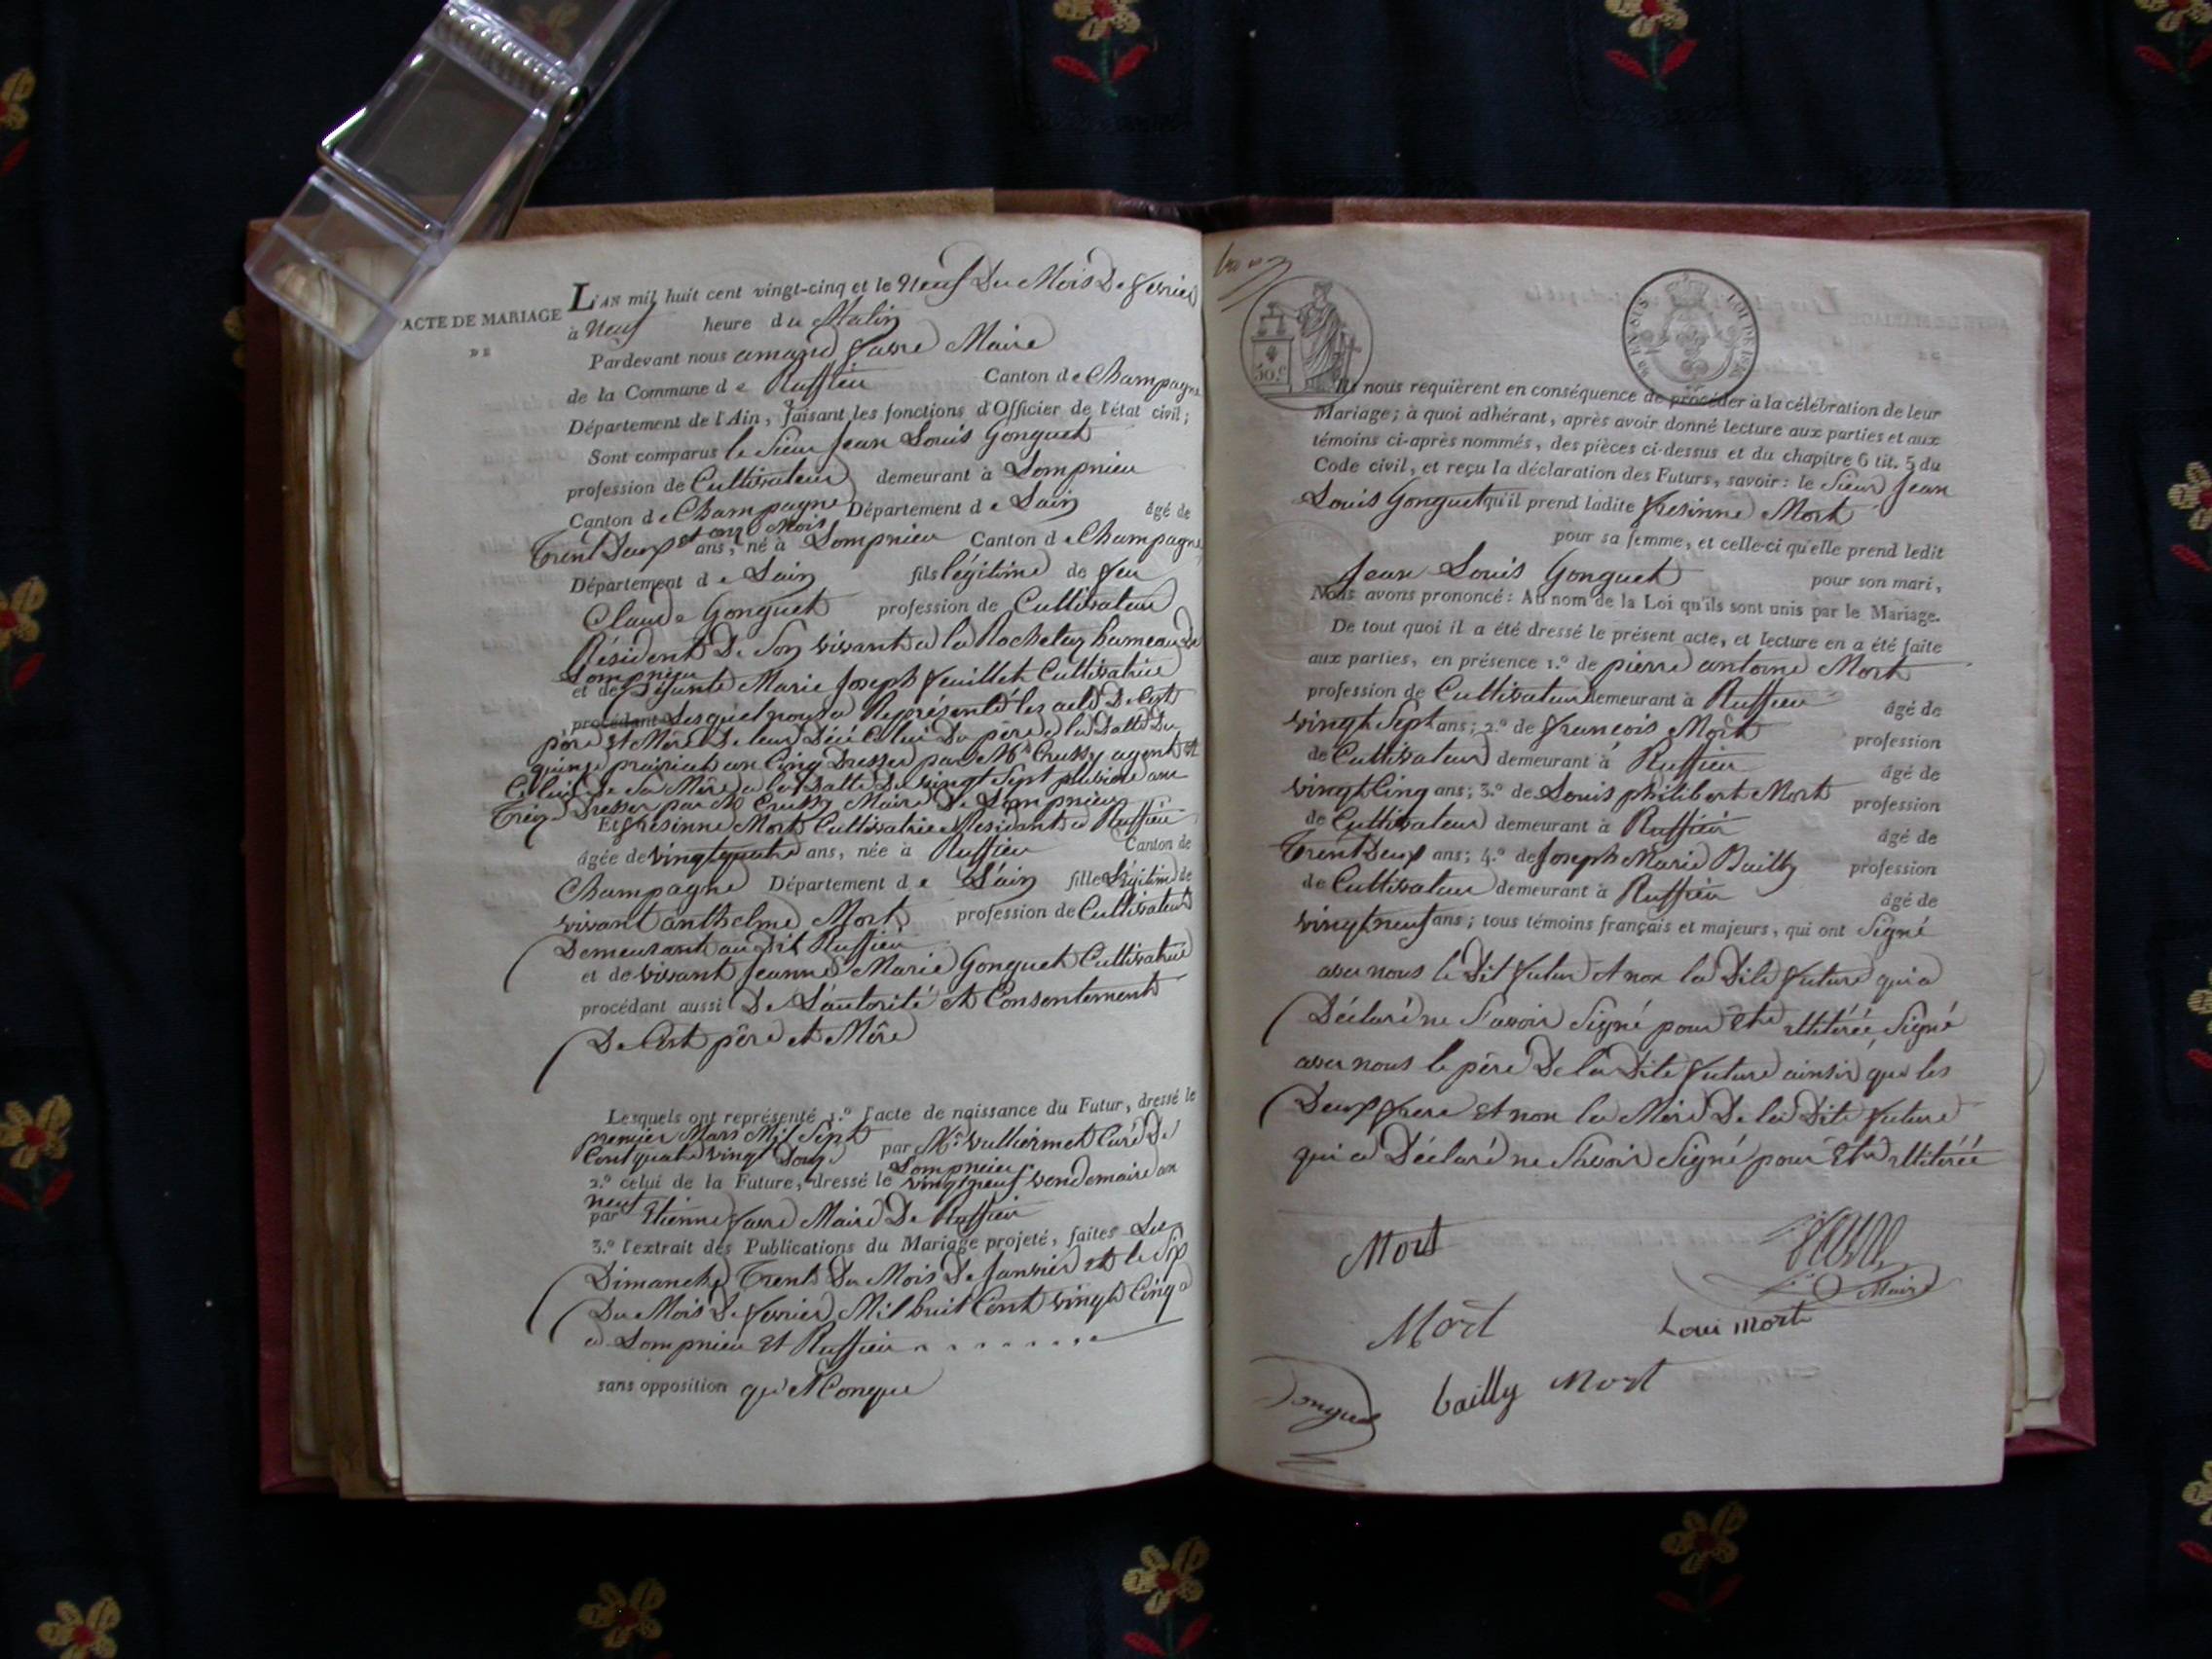 ACTE DE MARIAGE
DE
L'AN mil huit cent vingt-cinq et le Neuf Du Mois De fevrier
à Neuf heure du Matin
Pardevant nous amand favre Maire
de la Commune de Ruffieu Canton de Champagne
Département de l'Ain, faisant les fonctions d'Officier de l'état civil;
Sont comparus le Sieur Jean Louis Gonguet
profession de Cultivateur demeurant à Lompnieu
Canton de Champagne Département de Lain âgé de
Trent Deux et onz Mois ans, né à Lompnieu Canton de Champagne
Département de Lain fils légitime de feu
Claude Gonguet profession de Cultivateur
Résident De Son vivant a la Rochetaz hameau de
Lompnieu
et de Defunte Marie Joseph feuillet Cultivatrice
procédant Lesquel nous a Représenté les acte De Cest
père Et Mère De leur Décé Celui Du père a la Datte Du
quinze prairial an Cinq Dresser par Mr Crussy agent et
Celui De Sa Mère a la Datte Du vingt Sept pluviose an
Treize Dresser par Mr Crussy Maire De Lompnieu
Et fresinne Mort Cultivatrice Residant a Ruffieu
âgée de vingt quatre ans, née à Ruffieu Canton de
Champagne Département de L'ain fille Légitime de
vivant anthelme Mort profession de Cultivateur
Demeurant au Dit Ruffieu
et de vivant Jeanne Marie Gonguet Cultivatrice
procédant aussi De L'autorité et Consentement
De Cest père et Mère
Lesquels ont représenté 1.º l'acte de naissance du Futur, dressé le
premier Mars Mil Sept
Cent quatre vingt Douze par Mr Vulliermet Curé De
Lompnieu
2.º celui de la Future, dressé le vingt neuf vendemaire an
neuf
par Etienne favre Maire De Ruffieu
3.º l'extrait des Publications du Mariage projeté, faites Les
Dimanche Trente Du Mois De Janvier et le Six
Du Mois De fevrier Mil huit Cent vingt Cinq
a Lompnieu Et Ruffieu
sans opposition
50.c
Ils nous requièrent en conséquence de procéder à la célébration de leur
Mariage; à quoi adhérant, après avoir donné lecture aux parties et aux
témoins ci-après nommés, des pièces ci-dessus et du chapitre 6 tit. 5 du
Code civil, et reçu la déclaration des Futurs, savoir: le Sieur Jean
Louis Gonguet qu'il prend ladite fresinne Mort
pour sa femme, et celle-ci qu'elle prend ledit
Jean Louis Gonguet pour son mari,
Nous avons prononcé: Au nom de la Loi qu'ils sont unis par le Mariage.
De tout quoi il a été dressé le présent acte, et lecture en a été faite
aux parties, en présence 1.º de pierre antoine Mort
profession de Cultivateur demeurant à Ruffieu âgé de
vingt Sept ans; 2.º de francois Mort profession
de Cultivateur demeurant à Ruffieu âgé de
vingt Cinq ans; 3.º de Louis philibert Mort profession
de Cultivateur demeurant à Ruffieu âgé de
Trent Deux ans; 4.º de Joseph Marie Bailly profession
de Cultivateur demeurant à Ruffieu âgé de
vingt neuf ans; tous témoins français et majeurs, qui ont Signé
avec nous le Dit futur et non la Dite future qui a
Déclaré ne Savoir Signé pour Etre illitérée, Signé
avec nous le père De la Dite future ainsi que les
Deux frere Et non la Mère De la Dite future
qui a Déclaré ne Savoir Signé pour Etre illitérée
Mort
favre
Maire
Mort
Loui mort
bailly Mort